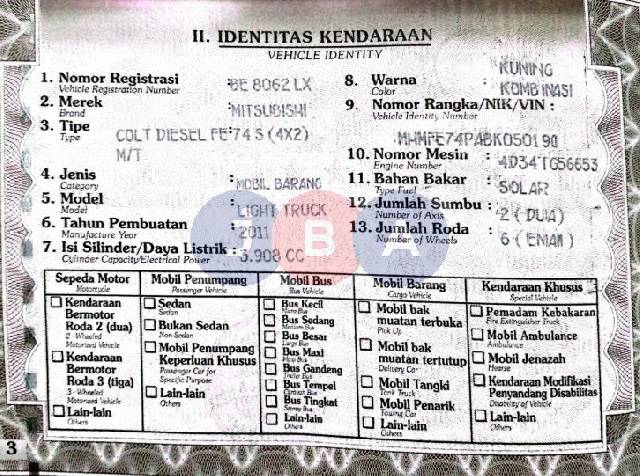 II. IDENTITAS KENDARAAN
VEHICLE IDENTITY
1. Nomor Registrasi : BE 8062 LX
Vehicle Registration Number
2. Merek : MITSUBISHI
Brand
3. Tipe : COLT DIESEL FE 74 S (4X2)
Type
M/T
4. Jenis : MOBIL BARANG
Category
5. Model : LIGHT TRUCK
Model
6. Tahun Pembuatan : 2011
Manufacture Year
7. Isi Silinder/Daya Listrik : 3.908 CC
Cylinder Capacity/Electrical Power
8. Warna : KUNING
Color
KOMBINASI
9. Nomor Rangka/NIK/VIN :
Vehicle Identity Number
MHMFE74P4BK050190
10. Nomor Mesin : 4D34TG56653
Engine Number
11. Bahan Bakar : SOLAR
Type Fuel
12. Jumlah Sumbu : 2 (DUA)
Number of Axis
13. Jumlah Roda : 6 (ENAM)
Number of Wheels
JBA
Sepeda Motor
Motorcycle
Kendaraan
Bermotor
Roda 2 (dua)
2-Wheeled
Motorized Vehicle
Kendaraan
Bermotor
Roda 3 (tiga)
3-Wheeled
Motorized Vehicle
Lain-lain
Others
Mobil Penumpang
Passenger Vehicle
Sedan
Sedan
Bukan Sedan
Non Sedan
Mobil Penumpang
Keperluan Khusus
Passenger Car for
Specific Purpose
Lain-lain
Others
Mobil Bus
Bus Vehicle
Bus Kecil
Micro Bus
Bus Sedang
Medium Bus
Bus Besar
Large Bus
Bus Maxi
Maxi Bus
Bus Gandeng
Bus Tempel
Bus Tingkat
Lain-lain
Others
Mobil Barang
Cargo Vehicle
Mobil bak
muatan terbuka
Pick Up
Mobil bak
muatan tertutup
Delivery Car
Mobil Tangki
Tank Truck
Mobil Penarik
Towing Car
Lain-lain
Others
Kendaraan Khusus
Special Vehicle
Pemadam Kebakaran
Fire Extinguisher Truck
Mobil Ambulance
Ambulance
Mobil Jenazah
Hearse
Kendaraan Modifikasi
Penyandang Disabilitas
Disability of Vehicle
Lain-lain
Others
3